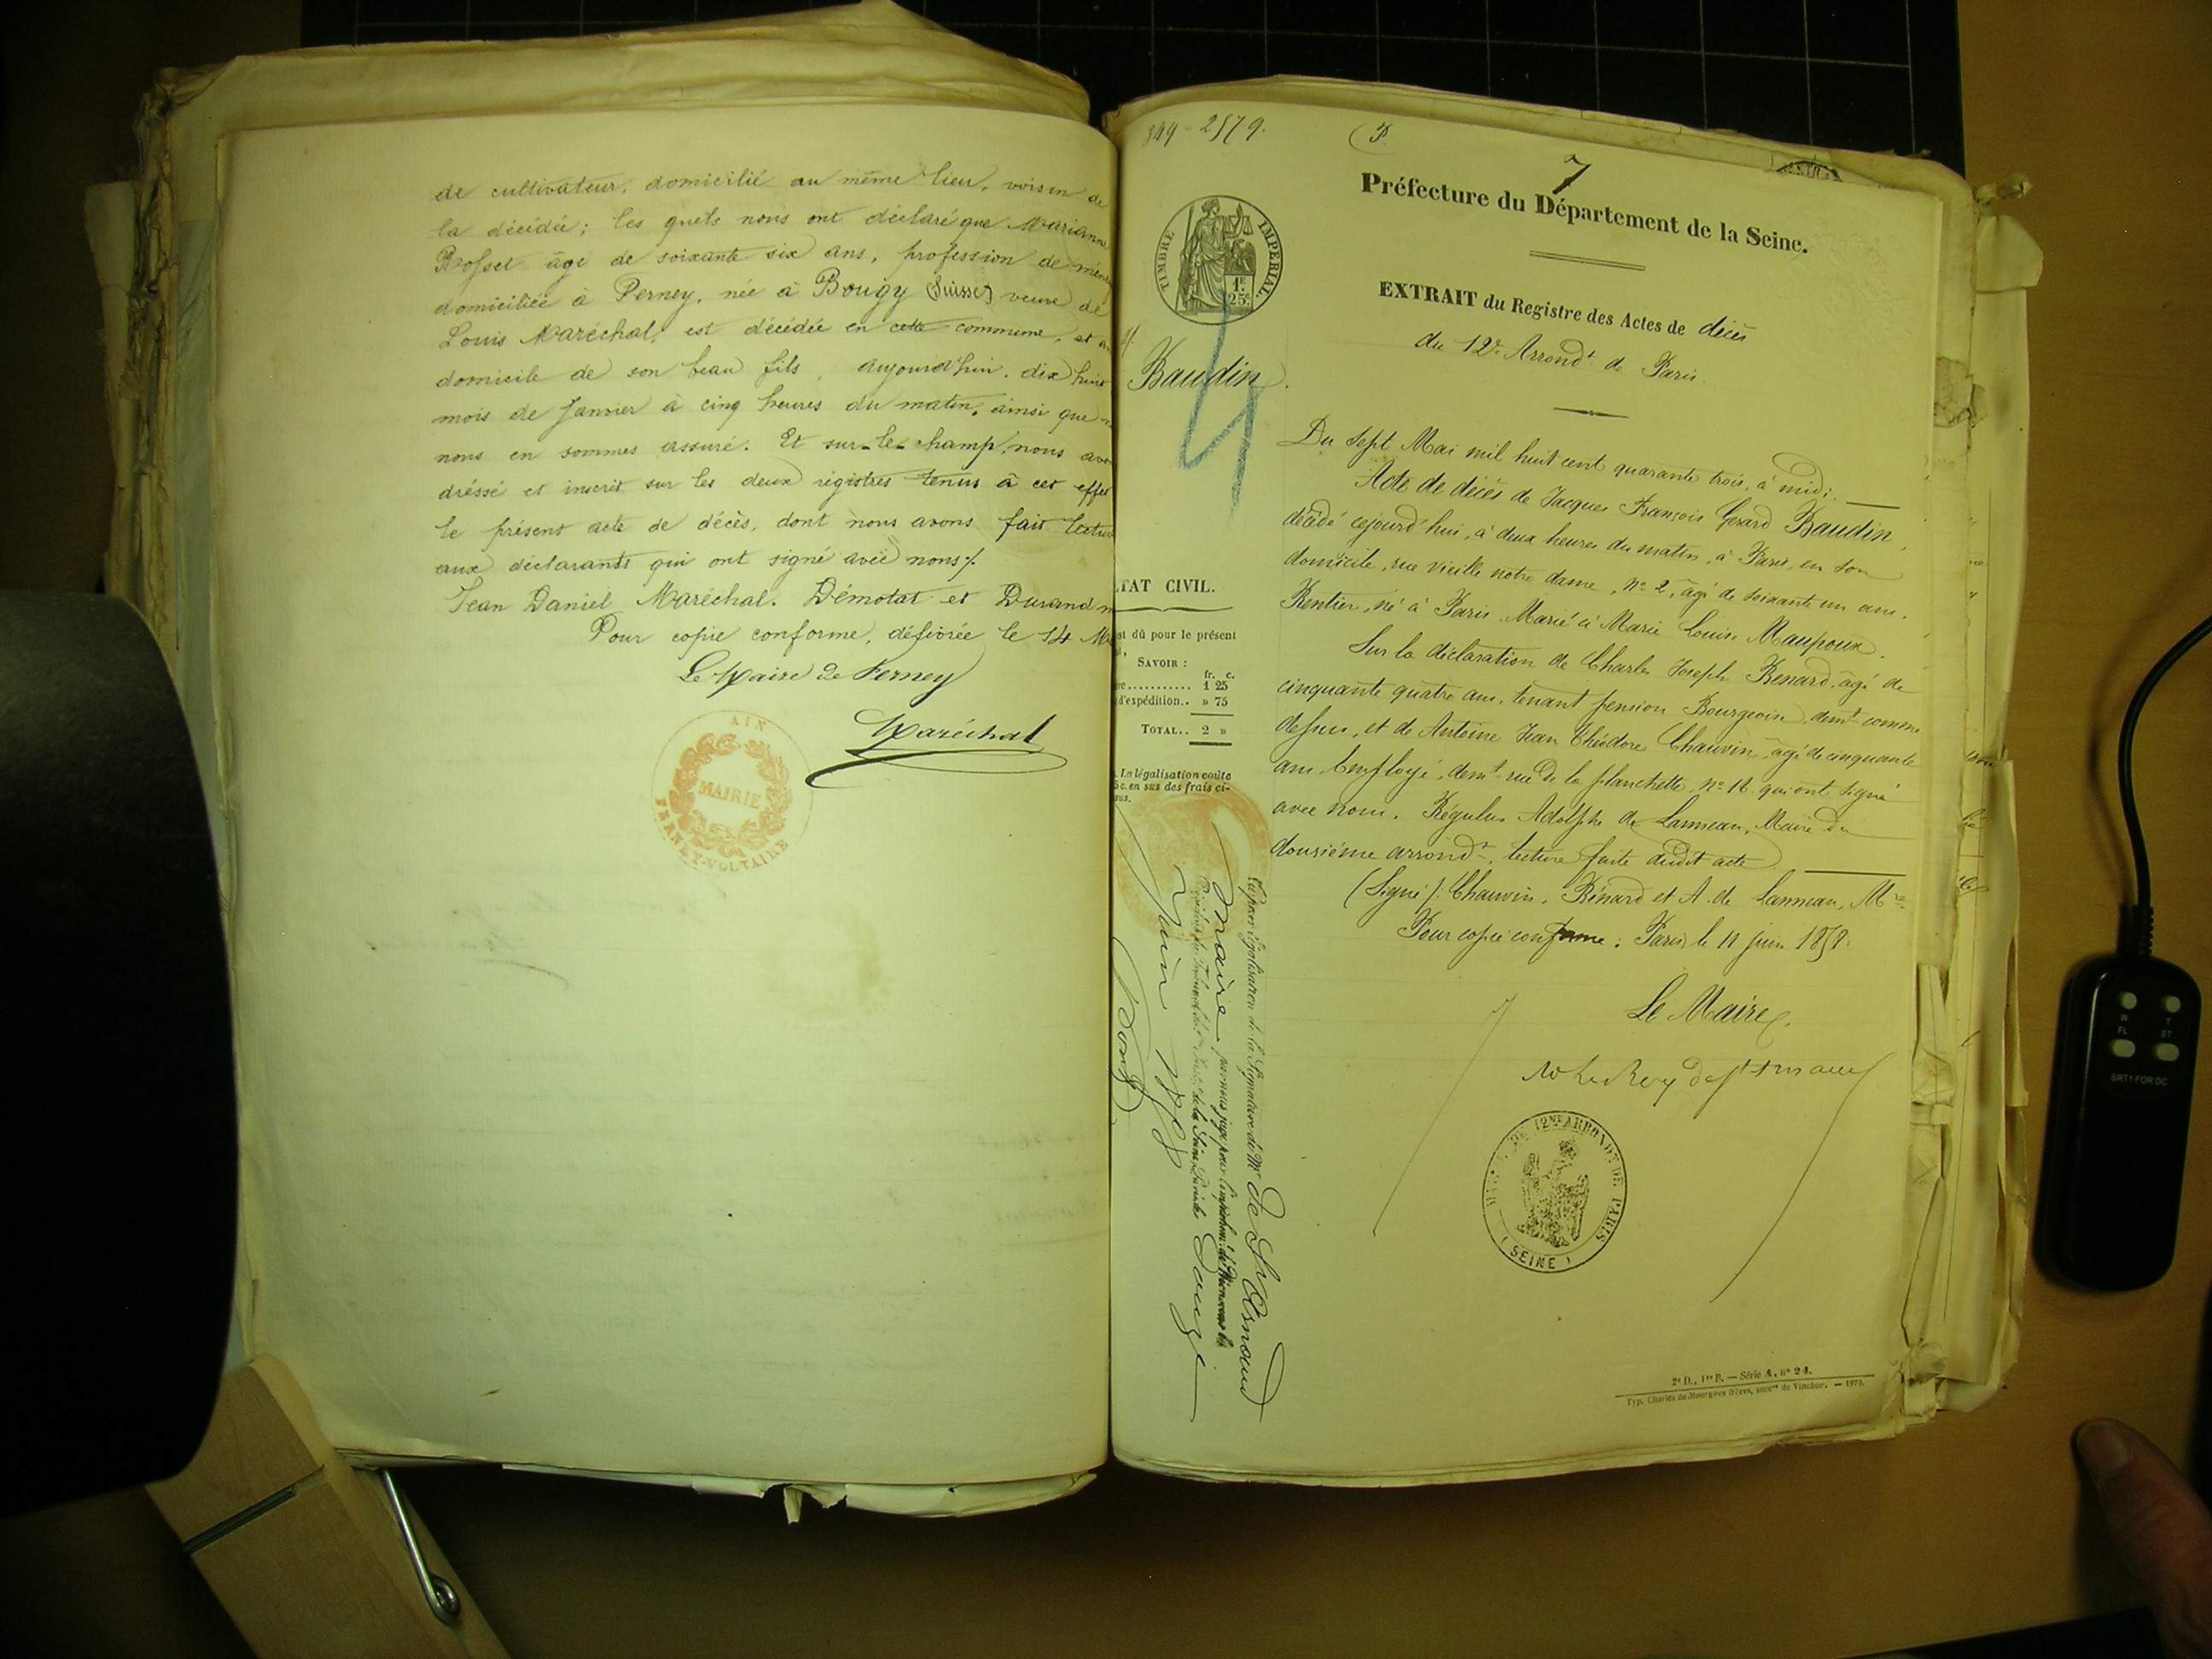 de cultivateur, domicilié au même lieu, voisin de
la décédée; les quels nous ont déclaré que Marianne
Rosset âgé de soixante six ans, profession de
domiciliée à Ferney, née à Bougy (Suisse) veuve de
Louis Maréchal, est décédée en cette commune, et
domicile de son beau fils, aujourd'hui, dix huit
mois de Janvier à cinq heures du matin, ainsi que
nous en sommes assuré. Et sur-le-champ, nous
dréssé et inscrit sur les deux régistres tenus à cet effet
le présent acte de décès, dont nous avons fait
aux déclarants qui ont signé avec nous/.
Jean Daniel Maréchal. Démotat et Durand
Pour copie conforme, délivrée le 14
Le Maire de Ferney
Maréchal
AIN
MAIRIE
FERNEY-VOLTAIRE
849 2579.
7
Préfecture du Département de la Seine.
TIMBRE IMPERIAL
1F
25c
EXTRAIT du Registre des Actes de décès
du 12e Arrondt de Paris
Baudin.
Du Sept Mai mil huit cent quarante trois, à midi.
Acte de décès de Jacques François Gerard Baudin,
décédé cejourd'hui, à deux heures du matin, à Paris, en son
domicile, rue vieille notre dame, No 2, âgé de soixante un ans.
Rentier, né à Paris. Marié à Marie Louise Maupoux.
Sur la déclaration de Charles Joseph Renard, âgé de
cinquante quatre ans, tenant pension Bourgeoise, demt comme
dessus, et de Antoine Jean Théodore Chauvin, âgé de cinquante
ans Employé, demt rue de la planchette, no 16 qui ont signé
avec nous. Régulus Adolphe de Lanneau, Maire du
douxième arrondt, lecture faite dudit acte
(Signé): Chauvin, Rénard et A. de Lanneau, Mre
Pour copie conforme. Paris, le 11 juin 1858
Le Maire
ETAT CIVIL.
est dû pour le présent
SAVOIR :
fr. c.
1 25
d'expédition.. » 75
TOTAL.. 2 »
La légalisation coûte
c. en sus des frais ci-
sus.
légalisation de la Signature de Mr de St Arnoud
Maire par nous juge pour l'empêchem. de
Juin 1858
12me ARRONDt DE PARIS
(SEINE)
2e D., 1er B. — Série A, no 24.
Typ. Charles de Mourgues frères, succrs de Vinchon. — 1979.